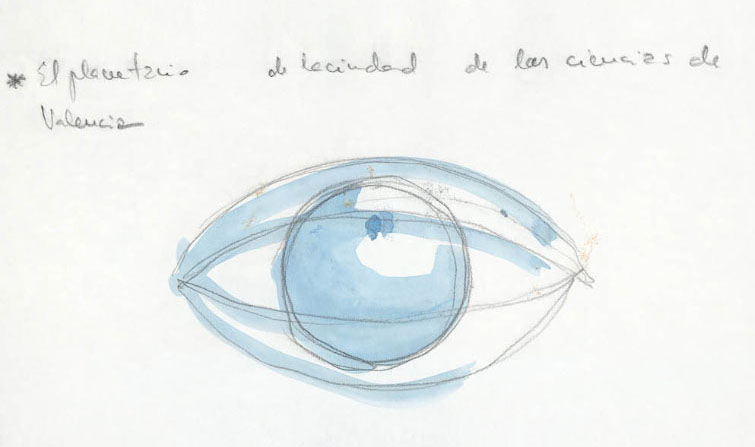 * El planetario de la ciudad de las ciencias de
Valencia